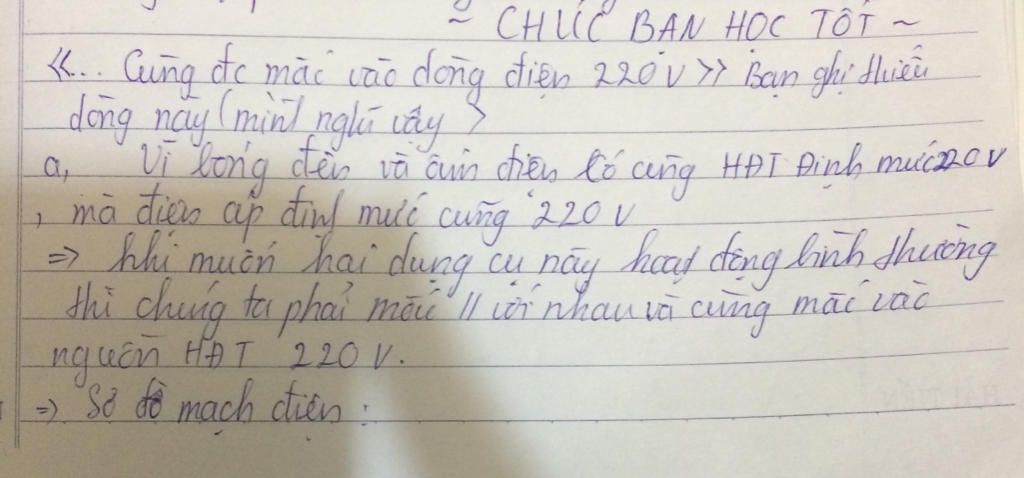 ~ CHÚC BẠN HỌC TỐT ~
<<... Cũng đc mắc vào dòng điện 220V>> Bạn ghi thiếu
dòng này (mình nghĩ vậy >
a, Vì bóng đèn và quạt điện có cùng HĐT Định mức 220V
, mà điện áp định mức cũng 220V
=> khi muốn hai dụng cụ này hoạt động bình thường
thì chúng ta phải mắc // với nhau và cùng mắc vào
nguồn HĐT 220V.
=> Sơ đồ mạch điện :